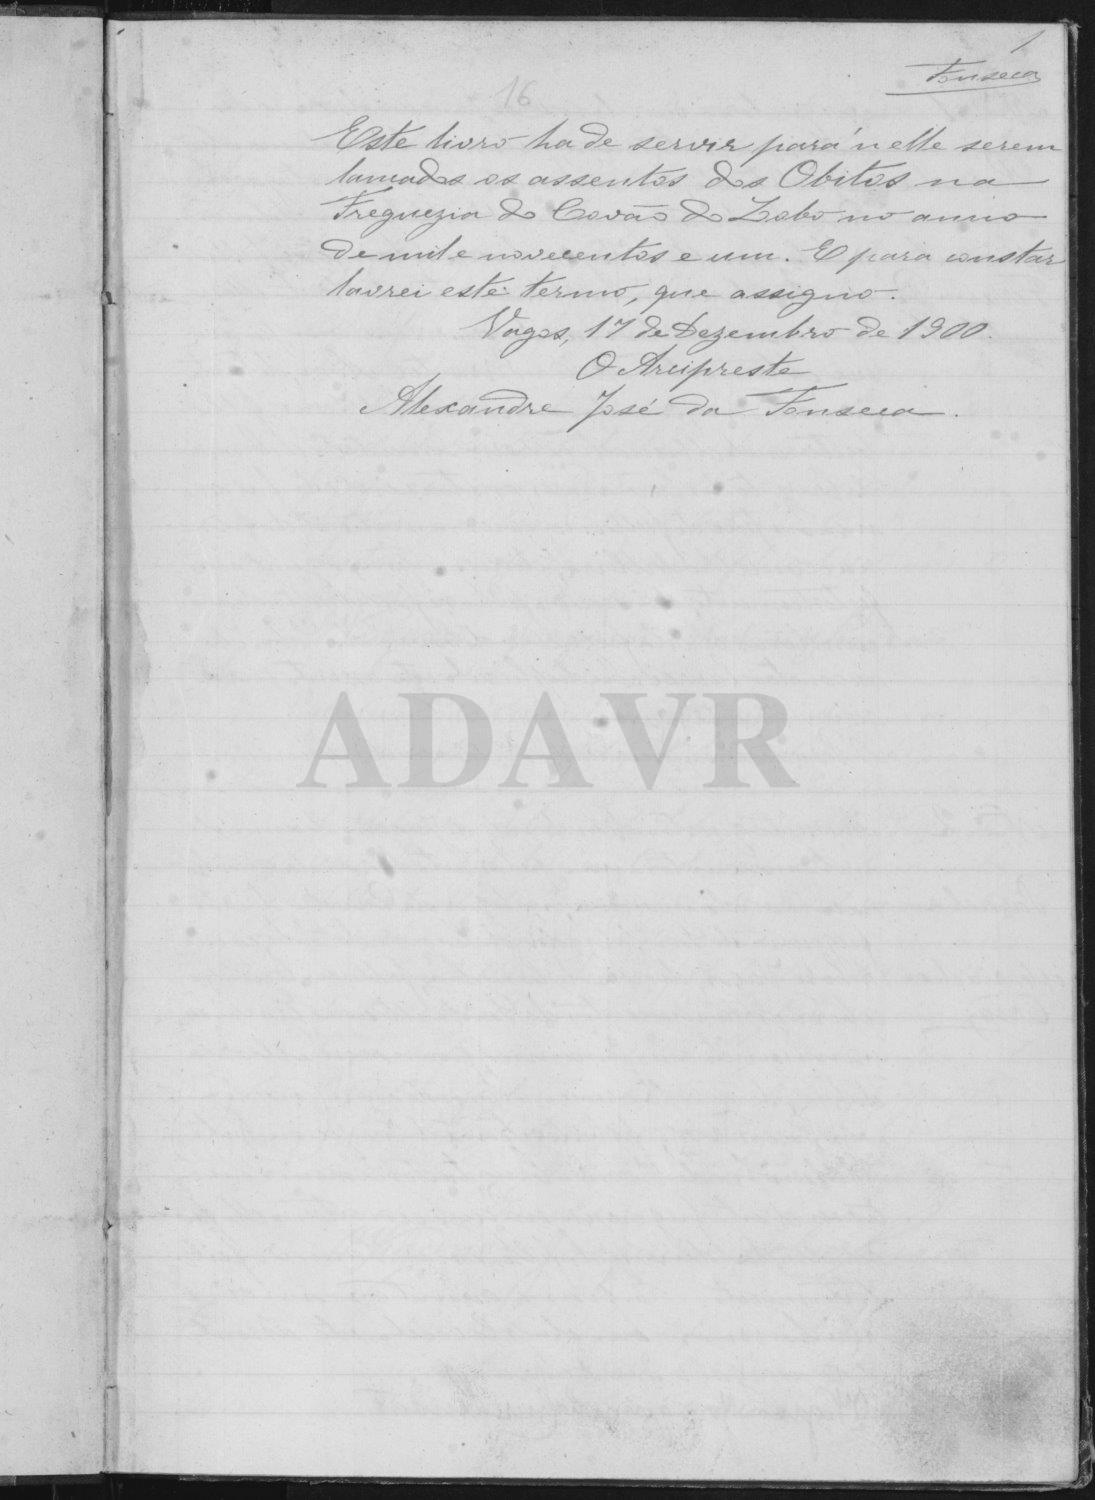 1
Fonseca
16
Este livro ha de servir para n'elle serem
lançados os assentos dos Obitos na
Freguezia do Covão do Lobo no anno
de mil e novecentos e um. E para constar
lavrei este termo, que assigno.
Vagos, 17 de Dezembro de 1900.
O Arcipreste
Alexandre José da Fonseca.
ADAVR